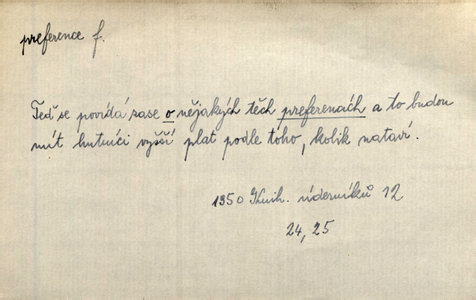 preference f.
Teď se povídá zase o nějakých těch preferenách a to budou
mít hutníci vyšší plat podle toho, kolik nataví.
1950 Knih. úderníků 12
24, 25